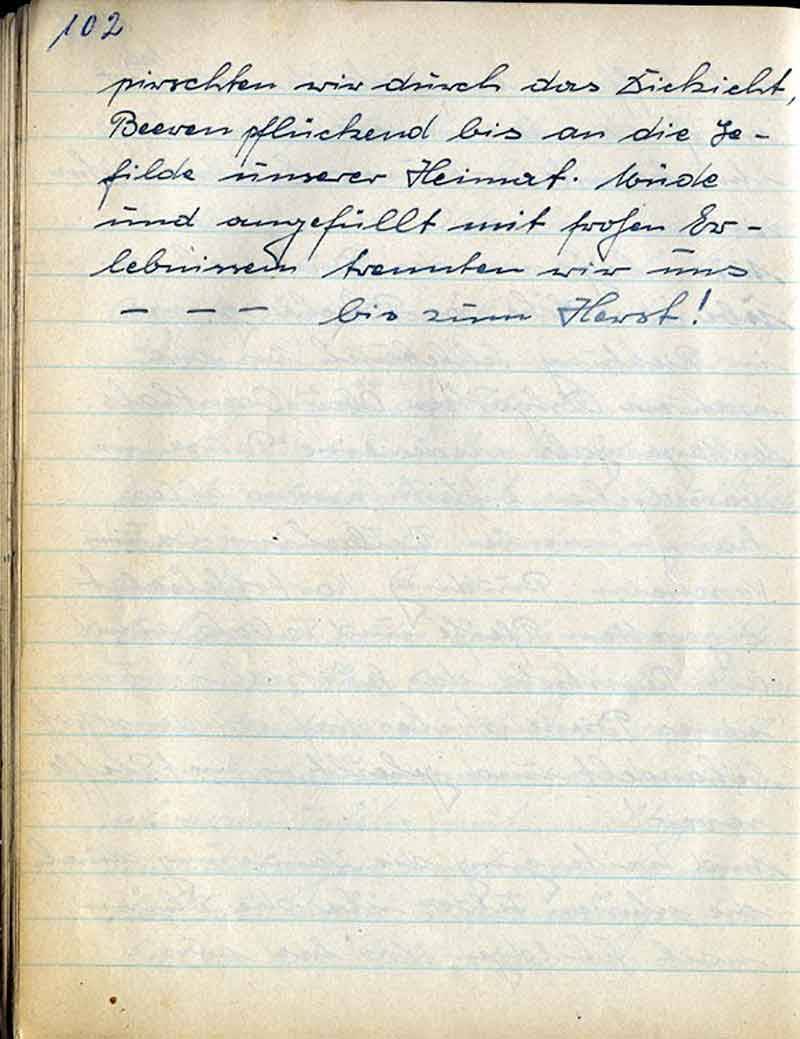 102
pirschten wir durch das Dickicht,
Beeren pflückend bis an die Ge-
filde unserer Heimat. Müde
und angefüllt mit frohen Er-
lebnissen trennten wir uns
— — — bis zum Herbst!